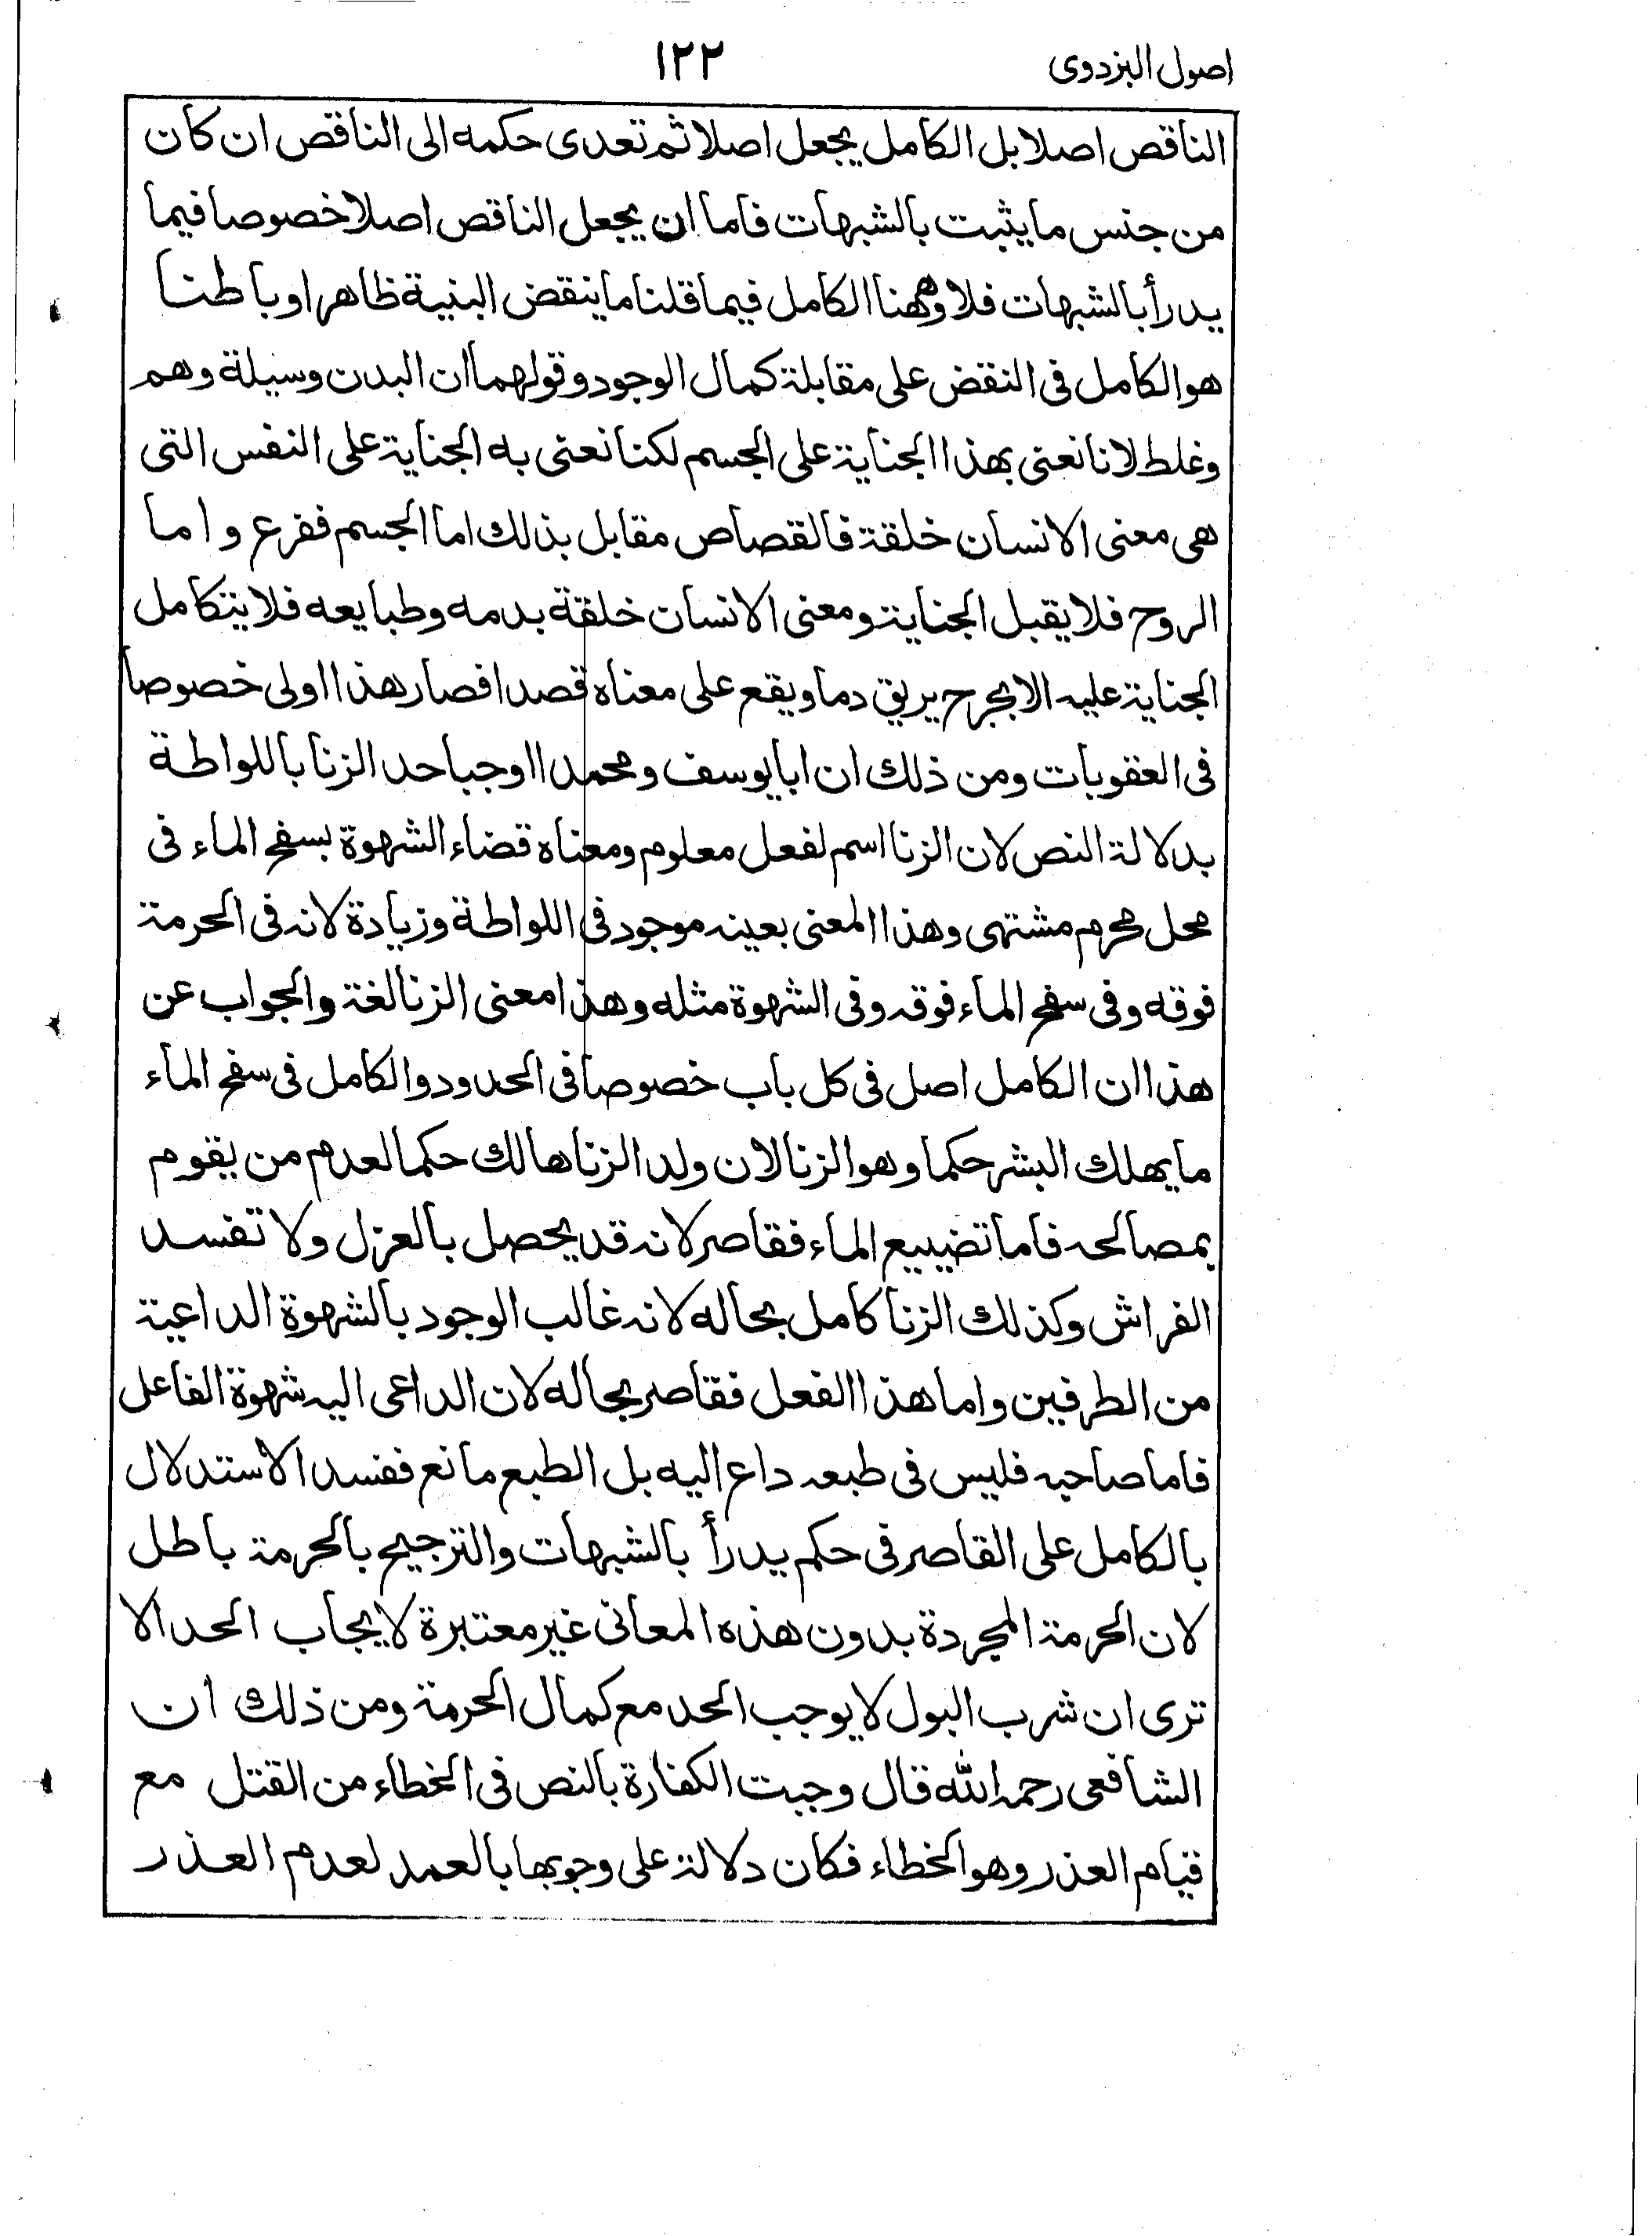 اصول البزدوى
١٢٢
الناقص اصلا بل الكامل يجعل اصلا ثم تعدى حكمه الى الناقص ان كان
من جنس ما يثبت بالشبهات فاما ان يجعل الناقص اصلا خصوصا فيما
يدرأ بالشبهات فلا وههنا الكامل فيما قلنا ما ينقض البنية ظاهرا و باطنا
هو الكامل فى النقض على مقابلة كمال الوجود و قولهما ان البدن وسيلة وهم
وغلط لانا نعنى بهذا الجناية على الجسم لكنا نعنى به الجناية على النفس التى
هى معنى الانسان خلقة فالقصاص مقابل بذلك اما الجسم ففرع و اما
الروح فلا يقبل الجناية ومعنى الانسان خلقة بدمه وطبايعه فلا يتكامل
الجناية عليه الا بجرح يريق دما ويقع على معناه قصدا فصار هذا اولى خصوصا
فى العقوبات ومن ذلك ان ابا يوسف ومحمدا اوجبا حد الزنا باللواطة
بدلالة النص لان الزنا اسم لفعل معلوم ومعناه قضاء الشهوة بسفح الماء فى
محل محرم مشتهى وهذا المعنى بعينه موجود فى اللواطة وزيادة لانه فى الحرمة
فوقه وفى سفح الماء فوقه وفى الشهوة مثله وهذا معنى الزنا لغة والجواب عن
هذا ان الكامل اصل فى كل باب خصوصا فى الحدود والكامل فى سفح الماء
ما يهلك البشر حكما وهو الزنا لان ولد الزنا هالك حكما لعدم من يقوم
بمصالحه فاما تضييع الماء فقاصر لانه قد يحصل بالعزل ولا تفسد
الفراش وكذلك الزنا كامل بحاله لانه غالب الوجود بالشهوة الداعية
من الطرفين واما هذا الفعل فقاصر بحاله لان الداعى اليه شهوة الفاعل
فاما صاحبه فليس فى طبعه داع اليه بل الطبع مانع ففسد الاستدلال
بالكامل على القاصر فى حكم يدرأ بالشبهات والترجيح بالحرمة باطل
لان الحرمة المجردة بدون هذه المعانى غير معتبرة لايجاب الحد الا
ترى ان شرب البول لا يوجب الحد مع كمال الحرمة ومن ذلك ان
الشافعى رحمه الله قال وجبت الكفارة بالنص فى الخطاء من القتل مع
قيام العذر وهو الخطاء فكان دلالة على وجوبها بالعمد لعدم العذر